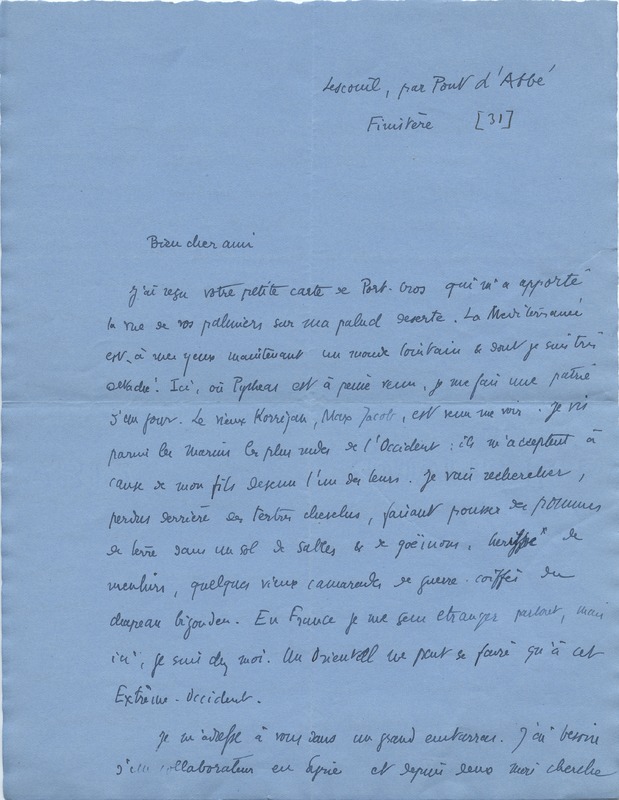 Lesconil, par Pont d'Abbé
Finistère [31]
Bien cher ami
J'ai reçu votre petite carte de Port-Cros qui m'a apporté
la vue de vos palmiers sur ma palud deserte. La Mediterranée
est à mes yeux maintenant un monde lointain & dont je suis très
détaché! Ici, où Pytheas est à peine venu, je me fais une patrie
d'un jour. Le vieux Korrigan, Max Jacob, est venu me voir. Je vis
parmi les marins les plus rudes de l'Occident: ils m'acceptent à
cause de mon fils devenu l'un des leurs. Je vais rechercher,
perdus derrière des tertres chevelus, faisant pousser des pommes
de terre dans un sol de sables & de goëmons, herissé de
menhirs, quelques vieux camarades de guerre coiffés du
chapeau bigouden. En France je me sens etranger partout, mais
ici, je suis chez moi. Un Oriental ne peut se faire qu'à cet
Extrême-Occident.
Je m'adresse à vous dans un grand embarras. J'ai besoin
d'un collaborateur en Syrie et depuis deux mois cherche